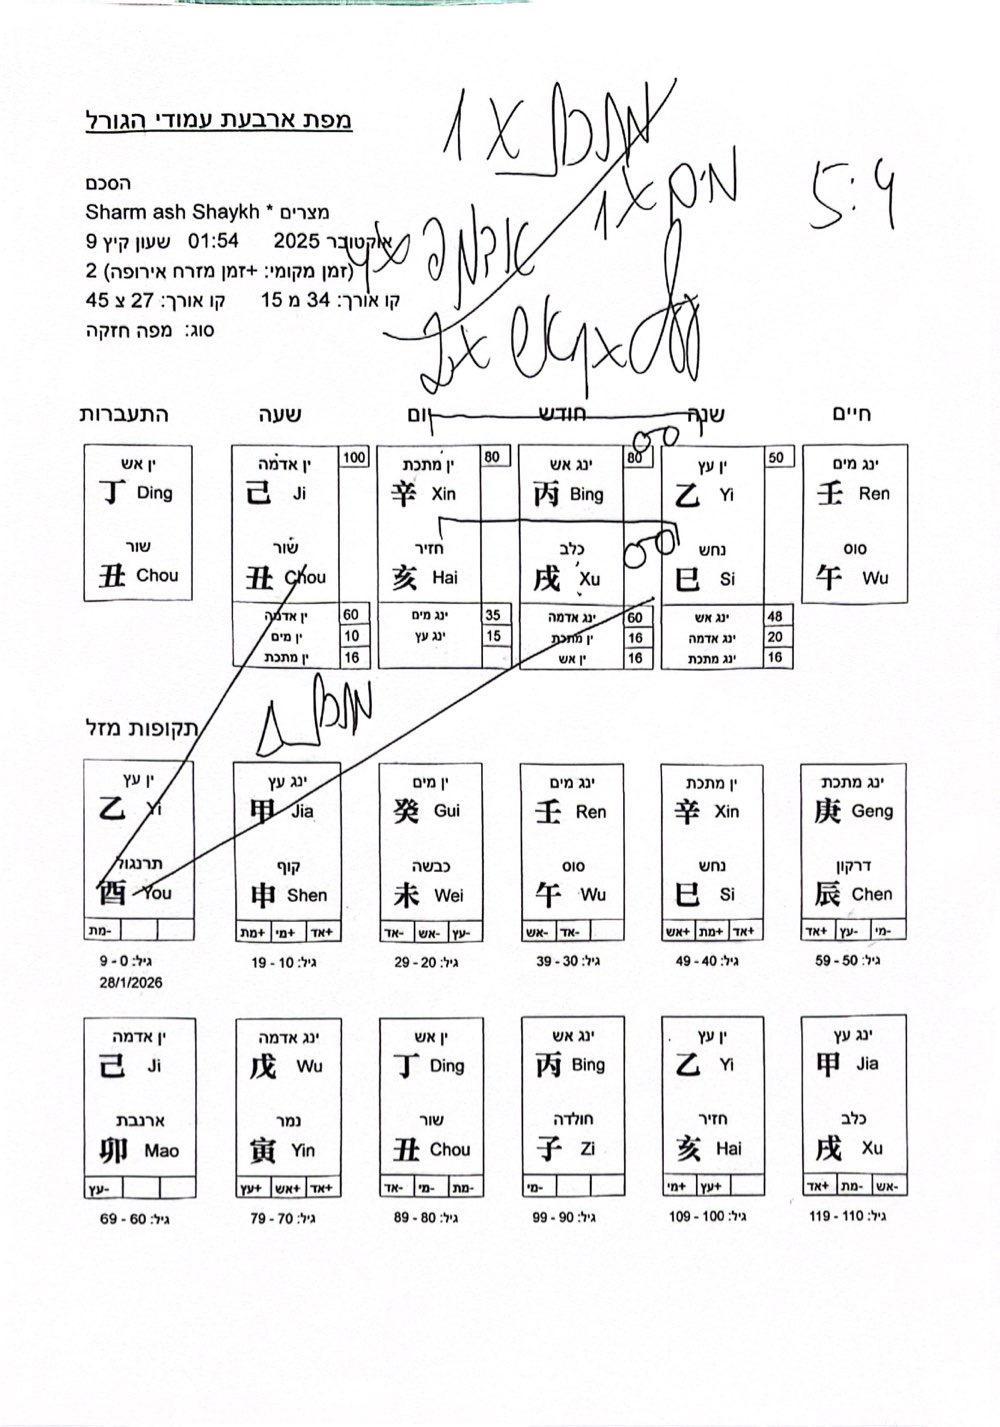 מפת ארבעת עמודי הגורל
1 x מתכת
מים x 1
5:4
הסכם
Sharm ash Shaykh * מצרים
9 אוקטובר 2025 01:54 שעון קיץ
אדמה x
(זמן מקומי: +זמן מזרח אירופה) 2
קו אורך: 34 מ 15 קו אורך: 27 צ 45
סוג: מפה חזקה
2x אש
חיים שנה חודש יום שעה התעברות
ינג מים ין עץ 50 ינג אש 80 ין מתכת 80 ין אדמה 100 ין אש
壬 Ren 乙 Yi 丙 Bing 辛 Xin 己 Ji 丁 Ding
סוס נחש כלב חזיר שור שור
午 Wu 巳 Si 戌 Xu 亥 Hai 丑 Chou 丑 Chou
ינג אש 48 ינג אדמה 60 ינג מים 35 ין אדמה 60
ינג אדמה 20 ין מתכת 16 ינג עץ 15 ין מים 10
ינג מתכת 16 ין אש 16 ין מתכת 16
מתכת
תקופות מזל
ינג מתכת ין מתכת ינג מים ין מים ינג עץ ין עץ
庚 Geng 辛 Xin 壬 Ren 癸 Gui 甲 Jia 乙 Yi
דרקון נחש סוס כבשה קוף תרנגול
辰 Chen 巳 Si 午 Wu 未 Wei 申 Shen 酉 You
אד+ עץ- מי- אש+ מת+ אד+ אש- אד- אד- אש- עץ- מת+ מי+ אד+ מת-
גיל: 50 - 59 גיל: 40 - 49 גיל: 30 - 39 גיל: 20 - 29 גיל: 10 - 19 גיל: 0 - 9
28/1/2026
ינג עץ ין עץ ינג אש ין אש ינג אדמה ין אדמה
甲 Jia 乙 Yi 丙 Bing 丁 Ding 戊 Wu 己 Ji
כלב חזיר חולדה שור נמר ארנבת
戌 Xu 亥 Hai 子 Zi 丑 Chou 寅 Yin 卯 Mao
אד+ מת- אש- מי+ עץ+ מי- אד- מי- מת- עץ+ אש+ אד+ עץ-
גיל: 110 - 119 גיל: 100 - 109 גיל: 90 - 99 גיל: 80 - 89 גיל: 70 - 79 גיל: 60 - 69